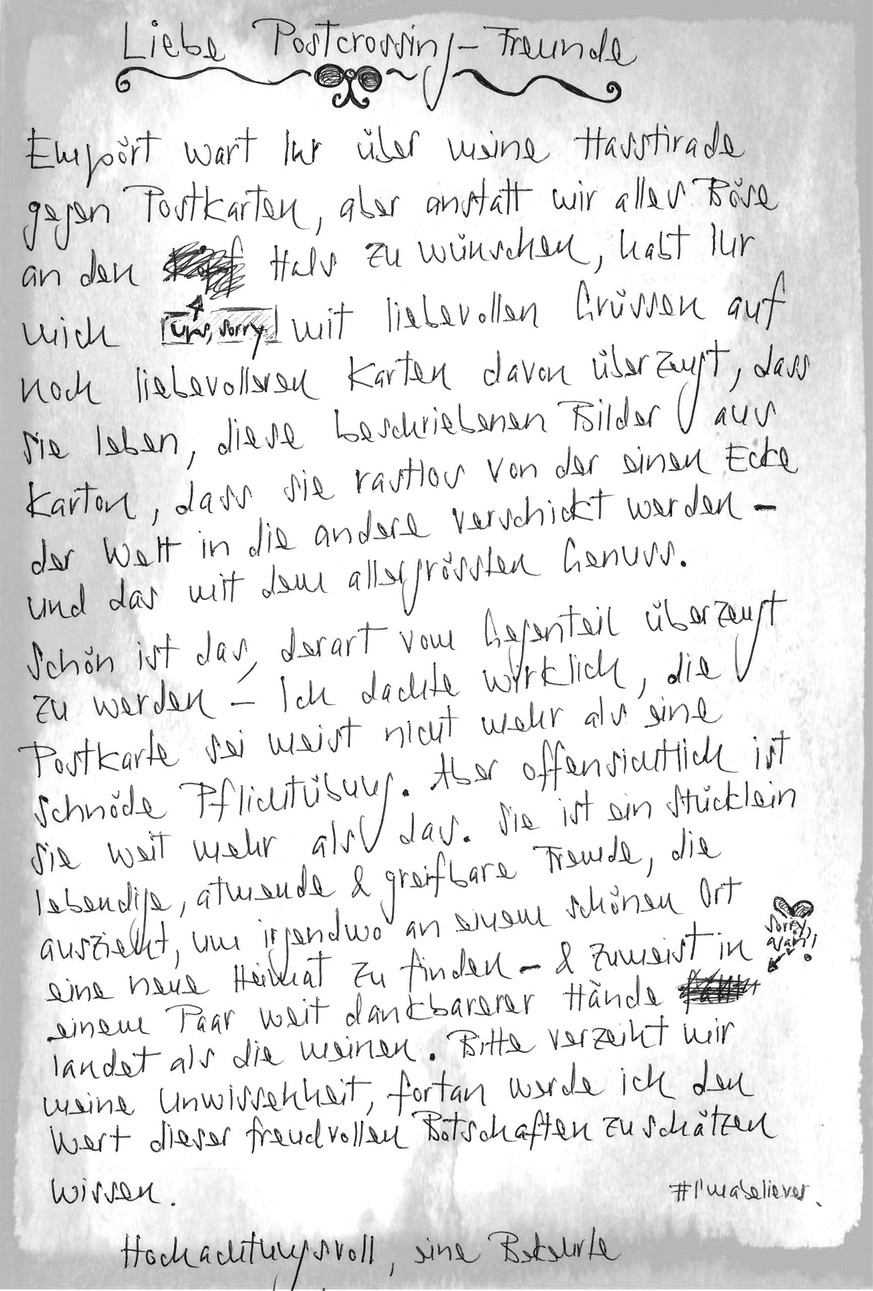 Liebe Postcrossing-Freunde
Empört wart Ihr über meine Hasstirade
gegen Postkarten, aber anstatt mir alles Böse
an den Hals zu wünschen, habt Ihr
mich mit liebevollen Grüssen auf
Ups, sorry
noch liebevolleren Karten davon überzeugt, dass
sie leben, diese beschriebenen Bilder aus
Karton, dass sie rastlos von der einen Ecke
der Welt in die andere verschickt werden –
und das mit dem allergrössten Genuss.
Schön ist das, derart vom Gegenteil überzeugt
zu werden – Ich dachte wirklich, die
Postkarte sei meist nicht mehr als eine
schnöde Pflichtübung. Aber offensichtlich ist
sie weit mehr als das. Sie ist ein Stücklein
lebendige, atmende & greifbare Freude, die
auszieht, um irgendwo an einem schönen Ort
eine neue Heimat zu finden – & zumeist in
sorry, again!
einem Paar weit dankbarerer Hände
landet als die meinen. Bitte verzeiht mir
meine Unwissenheit, fortan werde ich den
Wert dieser freudvollen Botschaften zu schätzen
wissen.
#I'mabeliever.
Hochachtungsvoll, eine Bekehrte